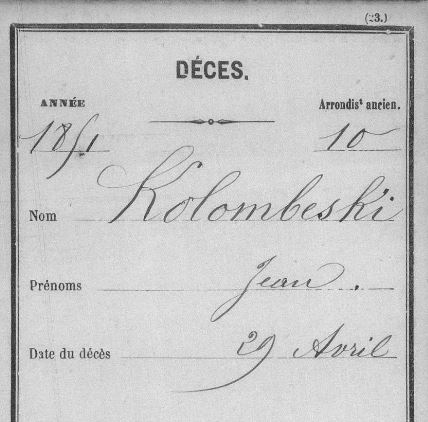 (23.)
DÉCES.
ANNÉE
Arrondist ancien.
1851
10
Nom Kolombeski
Prénoms Jean.
Date du décès 29 Avril